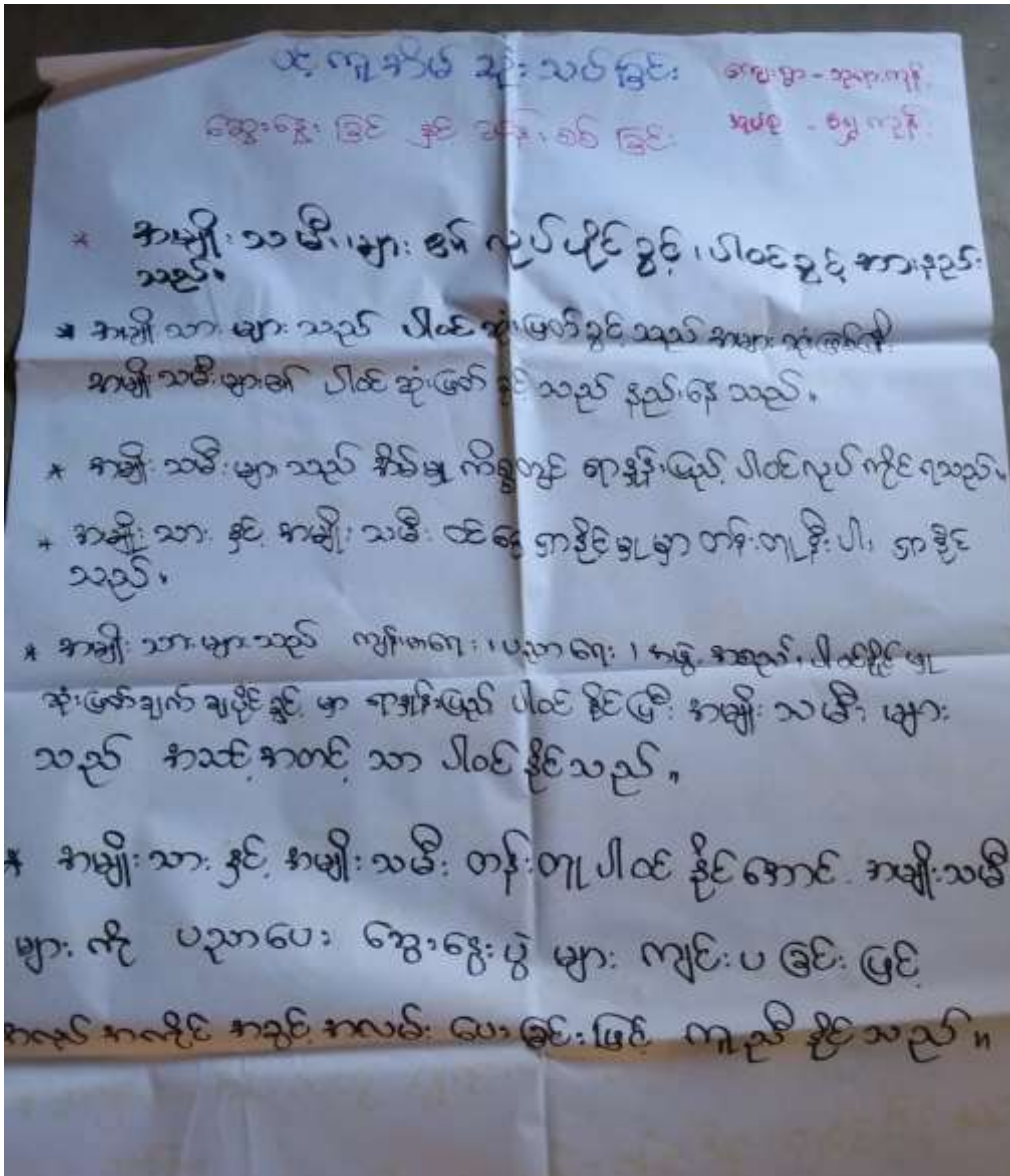 ပင့်ကူအိမ် သုံးသပ်ခြင်း ကျေးရွာ -
ဆွေးနွေးခြင် နှင့် ခြင်း
* အမျိုးသမီးများ၏ လုပ်ပိုင်ခွင့်၊ ပါဝင်ခွင့် အားနည်း
သည်။
* အမျိုးသားများသည် ပါဝင်ဆုံးဖြတ်ခွင့်သည် အများဆုံးဖြစ်ပြီး
အမျိုးသမီးများ၏ ပါဝင်ဆုံးဖြတ်နိုင်သည် နည်းနေသည်။
* အမျိုးသမီးများသည် အိမ်မှုကိစ္စတွင် ရာနှုန်းပြည့် ပါဝင်လုပ်ကိုင်ရသည်။
* အမျိုးသား နှင့် အမျိုးသမီး ဝင်ငွေရှာနိုင်မှုမှာ တန်းတူနီးပါး ရှာနိုင်
သည်။
* အမျိုးသားများသည် ကျန်းမာရေး၊ ပညာရေး၊ အဖွဲ့အစည်း ပါဝင်နိုင်မှု
ဆုံးဖြတ်ချက်ချပိုင်ခွင့် မှာ ရာနှုန်းပြည့် ပါဝင်နိုင်ပြီး အမျိုးသမီးများ
သည် အသင့်အတင့်သာ ပါဝင်နိုင်သည်။
* အမျိုးသား နှင့် အမျိုးသမီး တန်းတူပါဝင်နိုင်အောင် အမျိုးသမီ
များကို ပညာပေး ဆွေးနွေးပွဲများ ကျင်းပခြင်းဖြင့်
အလုပ်အကိုင်အခွင့်အလမ်းပေးခြင်းဖြင့် ကူညီနိုင်သည်။